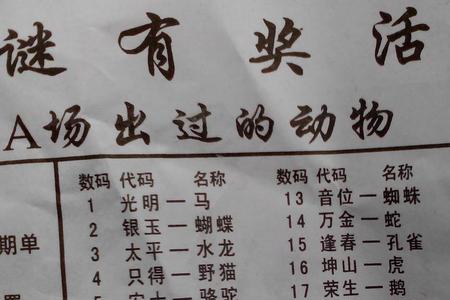 谜有奖活
A场出过的动物
数码 代码 名称 数码 代码 名称
1 光明一马 13 音位一蜘蛛
2 银玉一蝴蝶 14 万金一蛇
期单
3 太平一水龙 15 逢春一孔雀
4 只得一野猫 16 坤山一虎
5 骆驼 17 荣生一鹅